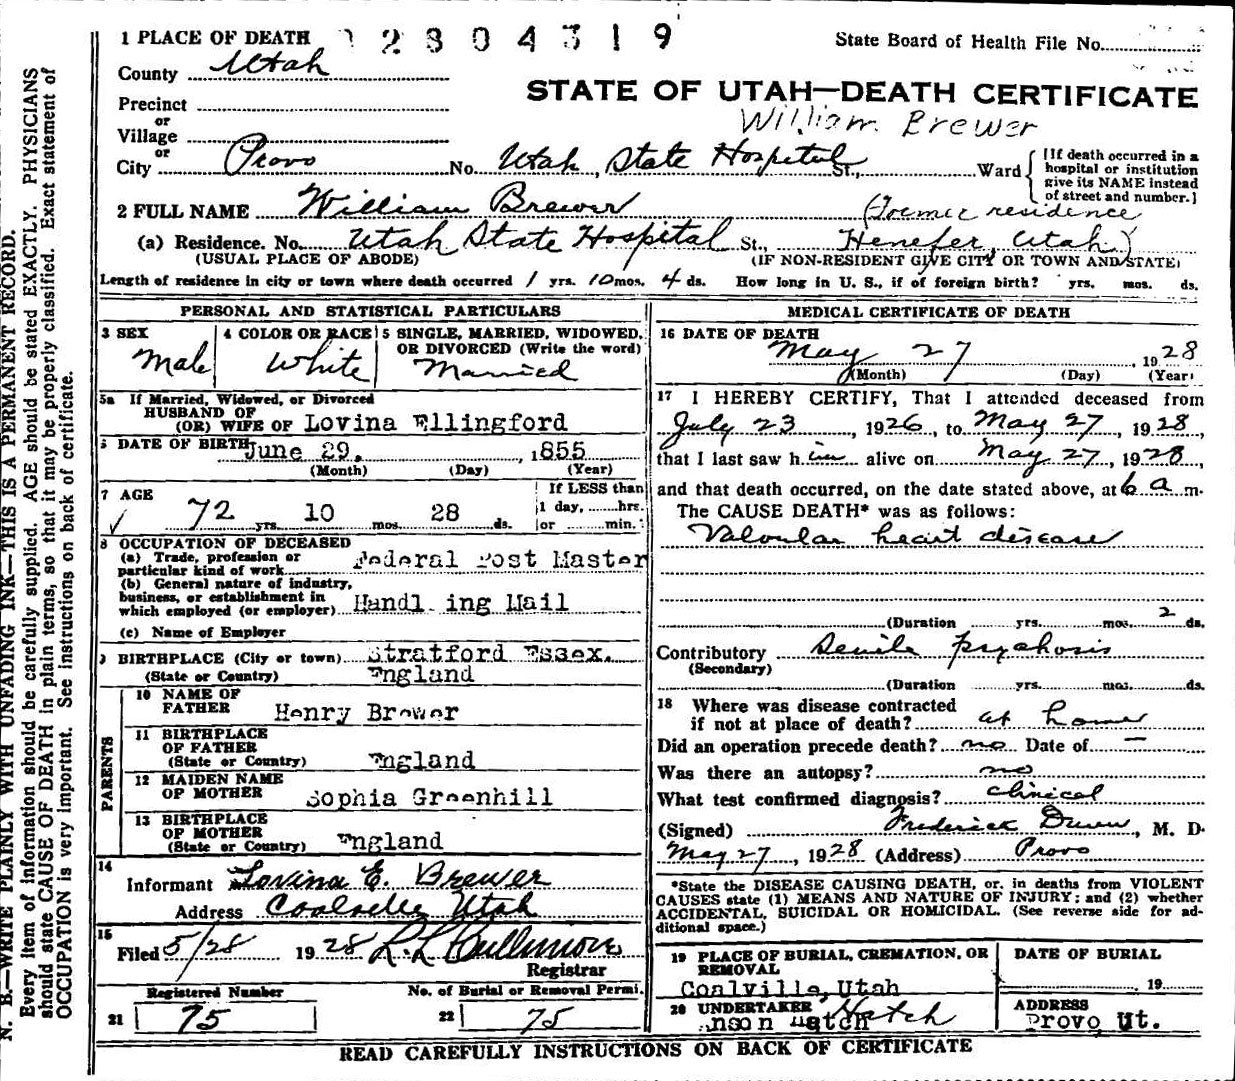 1 PLACE OF DEATH 2 8 0 4 3 1 9 State Board of Health File No.
County Utah
STATE OF UTAH—DEATH CERTIFICATE
Precinct
William Brewer
or
Village
or
City Provo No. Utah State Hospital St., Ward
[If death occurred in a
hospital or institution
give its NAME instead
of street and number.]
2 FULL NAME William Brewer (Former residence
(a) Residence. No. Utah State Hospital St., Henefer, Utah)
(USUAL PLACE OF ABODE) (IF NON-RESIDENT GIVE CITY OR TOWN AND STATE)
Length of residence in city or town where death occurred 1 yrs. 10 mos. 4 ds. How long in U. S., if of foreign birth? yrs. mos. ds.
PERSONAL AND STATISTICAL PARTICULARS
3 SEX 4 COLOR OR RACE 5 SINGLE, MARRIED, WIDOWED,
OR DIVORCED (Write the word)
Male White Married
5a If Married, Widowed, or Divorced
HUSBAND OF
(OR) WIFE OF Lovina Ellingford
6 DATE OF BIRTH June 29, 1855
(Month) (Day) (Year)
7 AGE If LESS than
1 day, hrs.
72 yrs. 10 mos. 28 ds. or min.
8 OCCUPATION OF DECEASED
(a) Trade, profession or
particular kind of work Federal Post Master
(b) General nature of industry,
business, or establishment in
which employed (or employer) Handl ing Mail
(c) Name of Employer
9 BIRTHPLACE (City or town) Stratford Essex.
(State or Country) England
PARENTS
10 NAME OF
FATHER Henry Brewer
11 BIRTHPLACE
OF FATHER
(State or Country) England
12 MAIDEN NAME
OF MOTHER Sophia Greenhill
13 BIRTHPLACE
OF MOTHER
(State or Country) England
14
Informant Lovina E. Brewer
Address Coalville Utah
15
Filed 5/28 1928 L. L. Cullimore
Registrar
Registered Number No. of Burial or Removal Permi.
21 75 22 75
MEDICAL CERTIFICATE OF DEATH
16 DATE OF DEATH
May 27, 1928
(Month) (Day) (Year)
17 I HEREBY CERTIFY, That I attended deceased from
July 23, 1926, to May 27, 1928,
that I last saw him alive on May 27, 1928,
and that death occurred, on the date stated above, at 6 a m.
The CAUSE DEATH* was as follows:
Valvular heart disease
(Duration yrs. mos. 2 ds.
Contributory Senile psychosis
(Secondary)
(Duration yrs. mos. ds.
18 Where was disease contracted
if not at place of death? at home
Did an operation precede death? no Date of —
Was there an autopsy? no
What test confirmed diagnosis? clinical
(Signed) Frederick Dunn, M. D.
May 27, 1928 (Address) Provo
*State the DISEASE CAUSING DEATH, or, in deaths from VIOLENT
CAUSES state (1) MEANS AND NATURE OF INJURY; and (2) whether
ACCIDENTAL, SUICIDAL OR HOMICIDAL. (See reverse side for ad-
ditional space.)
19 PLACE OF BURIAL, CREMATION, OR
REMOVAL
Coalville, Utah
DATE OF BURIAL
19
20 UNDERTAKER Hatch
Anson Hatch
ADDRESS
Provo, Ut.
READ CAREFULLY INSTRUCTIONS ON BACK OF CERTIFICATE
N. B.—WRITE PLAINLY WITH UNFADING INK—THIS IS A PERMANENT RECORD.
Every item of information should be carefully supplied. AGE should be stated EXACTLY. PHYSICIANS
should state CAUSE OF DEATH in plain terms, so that it may be properly classified. Exact statement of
OCCUPATION is very important. See Instructions on back of certificate.